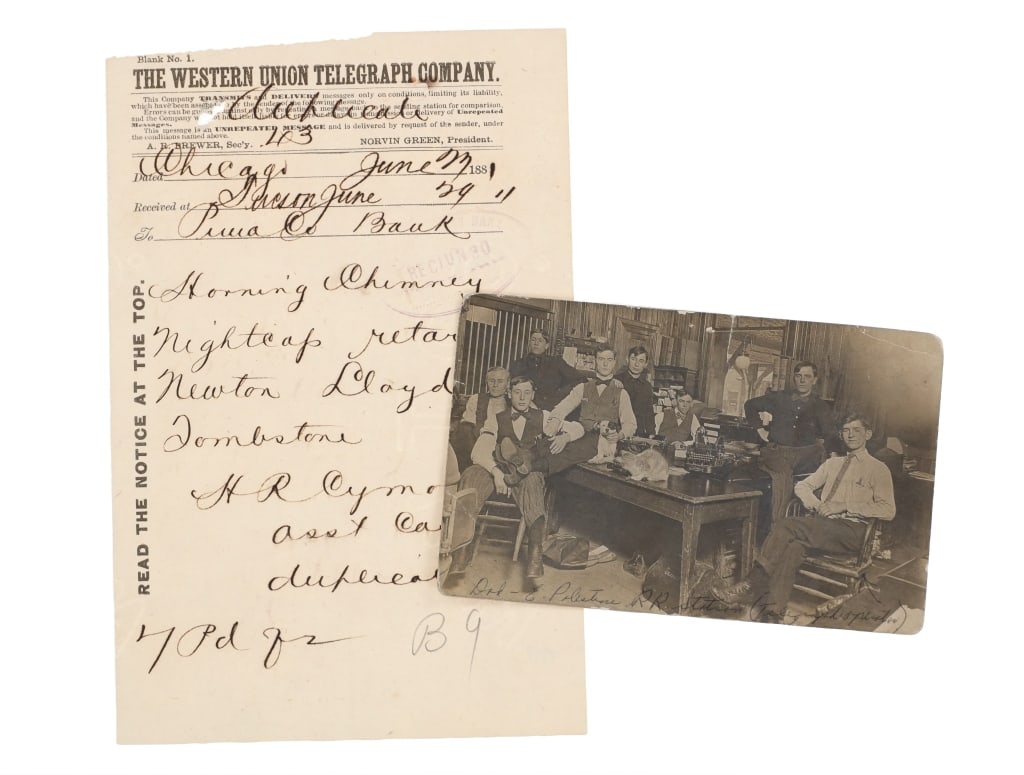 Blank No. 1.
THE WESTERN UNION TELEGRAPH COMPANY.
This Company TRANSMITS and DELIVERS messages only on conditions, limiting its liability,
which have been assented to by the sender of the following message.
Errors can be guarded against only by repeating a message back to the sending station for comparison,
and the Company will not hold itself liable for errors or delays in transmission or delivery of Unrepeated
Messages.
This message is an UNREPEATED MESSAGE and is delivered by request of the sender, under
the conditions named above.
43
A. R. BREWER, Sec'y. NORVIN GREEN, President.
Dated Chicago June 1881
Received at Tucson June 29
To Pima Co Bank
REC JUN 30
READ THE NOTICE AT THE TOP.
Horning Chimney
Nightcap retar
Newton Lloyd
Tombstone
H R
asst Ca
duplicat
7 Pd
B 9
E. Palestine RR Station (Telegraph operator)